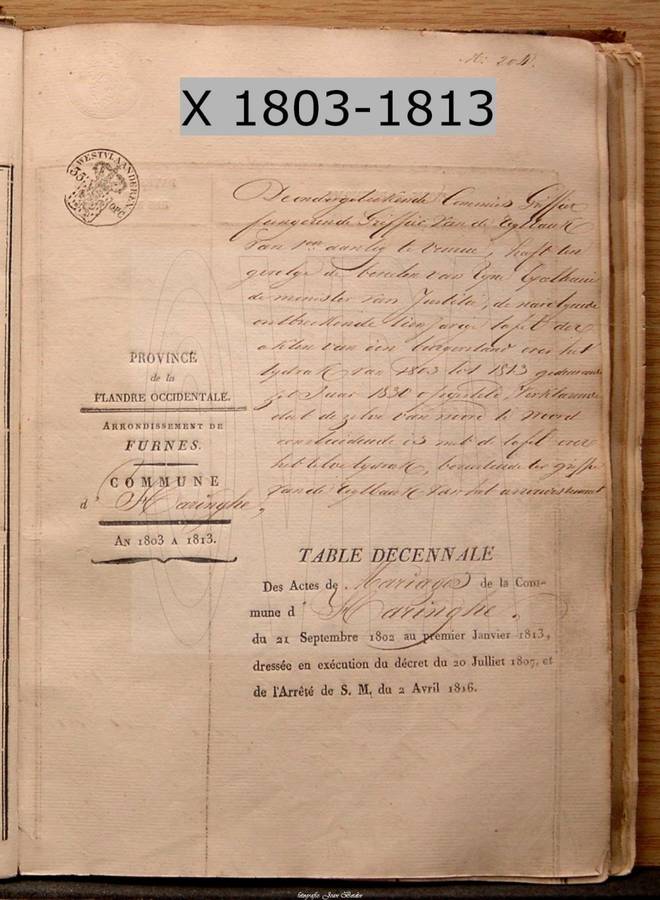 No. 204.
X 1803-1813
WESTVLAANDEREN
35
De ondergeteekende Commies Griffier
fungerende Griffier van de regtbank
van 1en aanleg te veurne, heeft ten
gevolge de bevelen van Zyne Excellencie
de minister van Justitie, de navolgende
ontbreekende tien jarige tafel der
akten van den burgerstand over het
tydvak van 1803 tot 1813
het Jaar 1830 opgesteld, Verklarende
dat dezelve van woord te woord
is met de tafel over
het zelve tydvak, berustende ter griffie
van de regtbank van het arrondissement
PROVINCE
de la
FLANDRE OCCIDENTALE.
ARRONDISSEMENT DE
FURNES.
COMMUNE
d' Haringhe,
AN 1803 A 1813.
TABLE DECENNALE
Des Actes de Mariages de la Com-
mune d' Haringhe,
du 21 Septembre 1802 au premier Janvier 1813,
dressée en exécution du décret du 20 Julliet 1807, et
de l'Arrêté de S. M. du 2 Avril 1816.